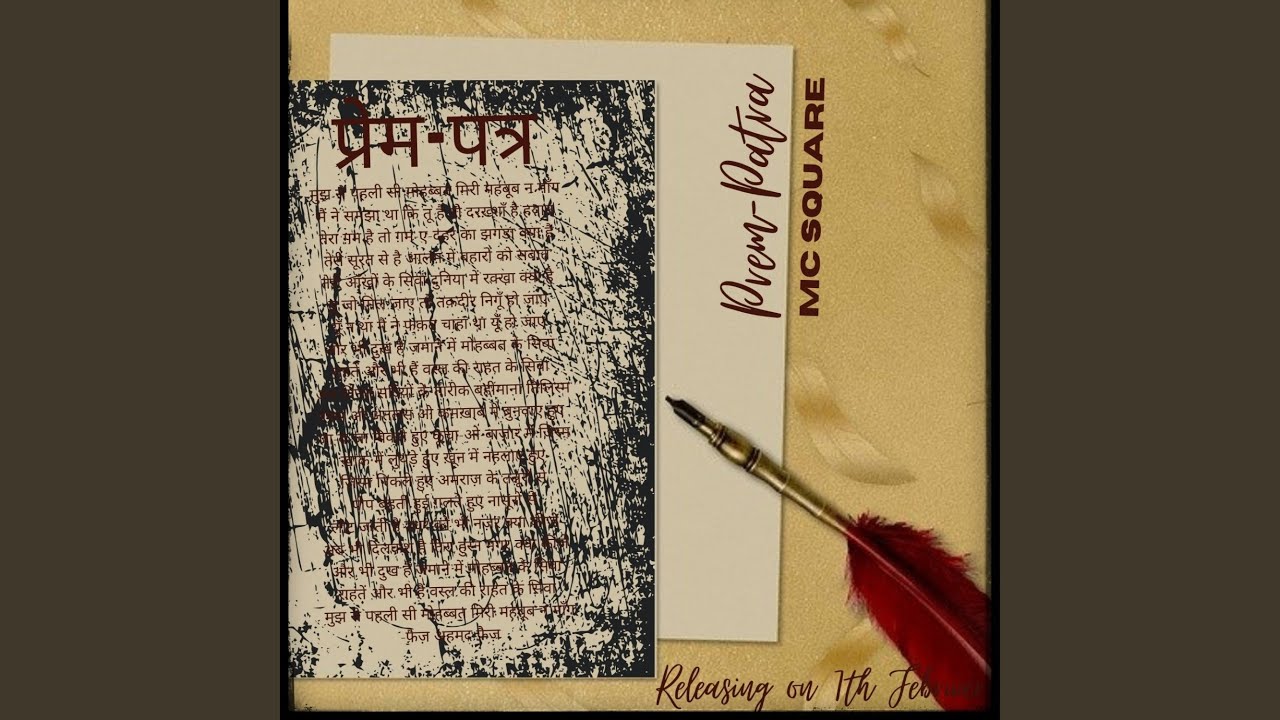 प्रेम-पत्र
मुझ से पहली सी मोहब्बत मिरी महबूब न माँग
मैं ने समझा था कि तू है तो दरख़्शाँ है हयात
तेरा ग़म है तो ग़म-ए-दहर का झगड़ा क्या है
तेरी सूरत से है आलम में बहारों को सबात
तेरी आँखों के सिवा दुनिया में रक्खा क्या है
जो मिल जाए तो तक़दीर निगूँ हो जाए
यूँ न था मैं ने फ़क़त चाहा था यूँ हो जाए
और भी दुख हैं ज़माने में मोहब्बत के सिवा
राहतें और भी हैं वस्ल की राहत के सिवा
सदियों के तारीक बहीमाना तिलिस्म
ओ कमख़ाब में बुनवाए हुए
हुए कूचा ओ बाज़ार में जिस्म
में लुथड़े हुए ख़ून में नहलाए हुए
जिस्म निकले हुए अमराज़ के तन्नूरों से
पीप बहती हुई गलते हुए नासूरों से
लौट जाती है उधर को भी नज़र क्या कीजे
अब भी दिलकश है तिरा हुस्न मगर क्या कीजे
और भी दुख हैं ज़माने में मोहब्बत के सिवा
राहतें और भी हैं वस्ल की राहत के सिवा
मुझ से पहली सी मोहब्बत मिरी महबूब न माँग
फ़ैज़ अहमद फ़ैज़
Prem-Patra
MC SQUARE
Releasing on 7th Februar